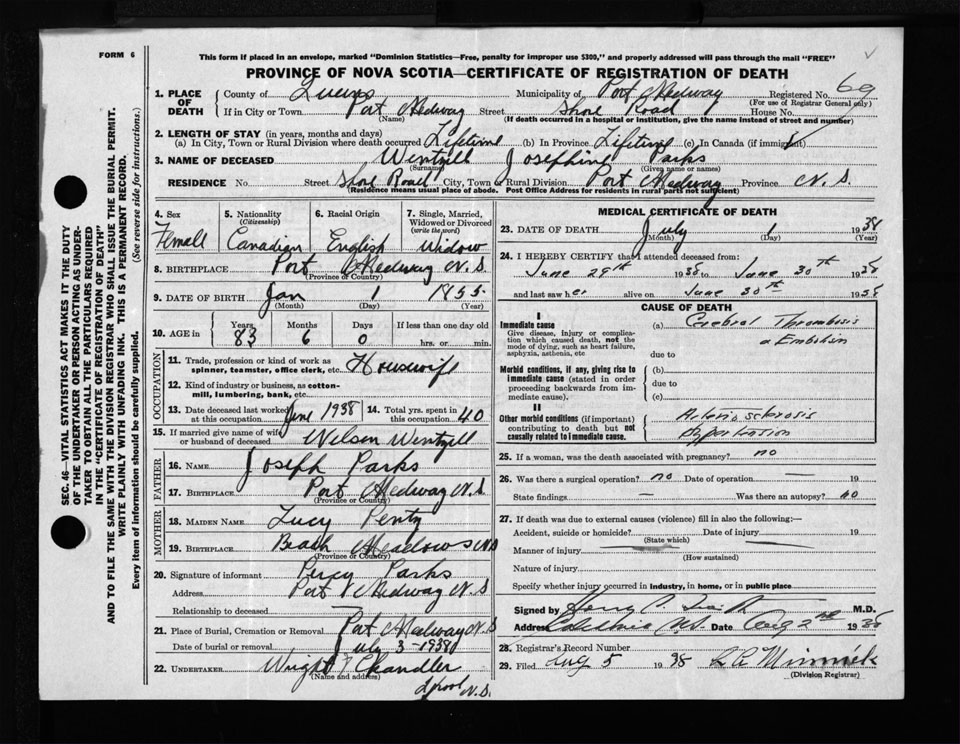 FORM 6
This form if placed in an envelope, marked "Dominion Statistics—Free, penalty for improper use $300," and properly addressed will pass through the mail "FREE"
PROVINCE OF NOVA SCOTIA—CERTIFICATE OF REGISTRATION OF DEATH
1. PLACE OF DEATH County of Queens Municipality of Port Medway Registered No. 69
(For use of Registrar General only)
If in City or Town Port Medway Street Shore Road House No.
(Name) (If death occurred in a hospital or institution, give the name instead of street and number)
2. LENGTH OF STAY (in years, months and days)
(a) In City, Town or Rural Division where death occurred Lifetime (b) In Province Lifetime (c) In Canada (if immigrant)
3. NAME OF DECEASED Wentzell Josephine Parks
(Surname) (Given name or names)
RESIDENCE No. Street Shore Road City, Town or Rural Division Port Medway Province N.S.
(Residence means usual place of abode. Post Office Address for residents in rural parts not sufficient)
4. Sex Female
5. Nationality (Citizenship) Canadian
6. Racial Origin English
7. Single, Married, Widowed or Divorced (write the word) Widow
8. BIRTHPLACE Port Medway N.S.
(Province or Country)
9. DATE OF BIRTH Jan 1 1855
(Month) (Day) (Year)
10. AGE in Years 83 Months 6 Days 0 If less than one day old hrs. or min.
OCCUPATION
11. Trade, profession or kind of work as spinner, teamster, office clerk, etc. Housewife
12. Kind of industry or business, as cotton-mill, lumbering, bank, etc.
13. Date deceased last worked at this occupation June 1938 14. Total yrs. spent in this occupation 40
15. If married give name of wife or husband of deceased Nelson Wentzell
FATHER
16. NAME Joseph Parks
17. BIRTHPLACE Port Medway N.S.
(Province or Country)
MOTHER
18. MAIDEN NAME Lucy Penty
19. BIRTHPLACE Beach Meadows N.S.
(Province or Country)
20. Signature of informant Percy Parks
Address Port Medway N.S
Relationship to deceased
21. Place of Burial, Cremation or Removal Port Medway N.S
Date of burial or removal July 3 1938
22. UNDERTAKER Wright & Chandler
(Name and address)
L'pool N.S.
MEDICAL CERTIFICATE OF DEATH
23. DATE OF DEATH July 1 1938
(Month) (Day) (Year)
24. I HEREBY CERTIFY that I attended deceased from:
June 29th 1938 to June 30th 1938
and last saw her alive on June 30th 1938
CAUSE OF DEATH
I
Immediate cause (a) Cerebral Thrombosis
Give disease, injury or complication which caused death, not the mode of dying, such as heart failure, asphyxia, asthenia, etc
or Embolism
due to
Morbid conditions, if any, giving rise to immediate cause (stated in order proceeding backwards from immediate cause).
(b)
due to
(c)
II
Other morbid conditions (if important) contributing to death but not causally related to immediate cause.
Arteriosclerosis
Hypertension
25. If a woman, was the death associated with pregnancy? no
26. Was there a surgical operation? no Date of operation 19
State findings — Was there an autopsy? no
27. If death was due to external causes (violence) fill in also the following:—
Accident, suicide or homicide? Date of injury 19
(State which)
Manner of injury
(How sustained)
Nature of injury
Specify whether injury occurred in industry, in home, or in public place
Signed by Henry M.D.
Address Caledonia N.S. Date Aug 2nd 1938
28. Registrar's Record Number
29. Filed Aug 5 1938
(Division Registrar)
SEC. 46—VITAL STATISTICS ACT MAKES IT THE DUTY
OF THE UNDERTAKER OR PERSON ACTING AS UNDER-
TAKER TO OBTAIN ALL THE PARTICULARS REQUIRED
IN THE "CERTIFICATE OF REGISTRATION OF DEATH"
AND TO FILE THE SAME WITH THE DIVISION REGISTRAR WHO SHALL ISSUE THE BURIAL PERMIT.
WRITE PLAINLY WITH UNFADING INK. THIS IS A PERMANENT RECORD.
Every item of information should be carefully supplied. (See reverse side for instructions.)